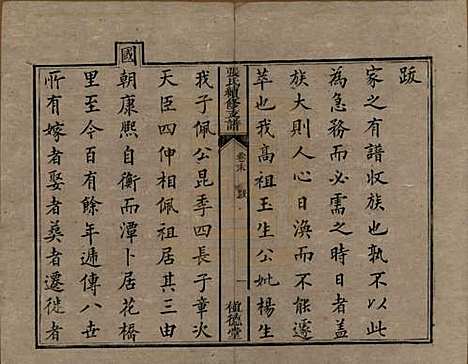 跋
家之有譜收族也孰不以此
為急務而必需之時日者蓋
族大則人心日渙而不能遽
萃也我高祖玉生公妣楊生
張氏續修支譜 卷末 跋 一 植德堂
我子佩公昆季四長子章次
天臣四仲相佩祖居其三由
國朝康熙自衡而潭卜居花橋
里至今百有餘年遞傳八世
所有嫁者娶者葬者遷徙者